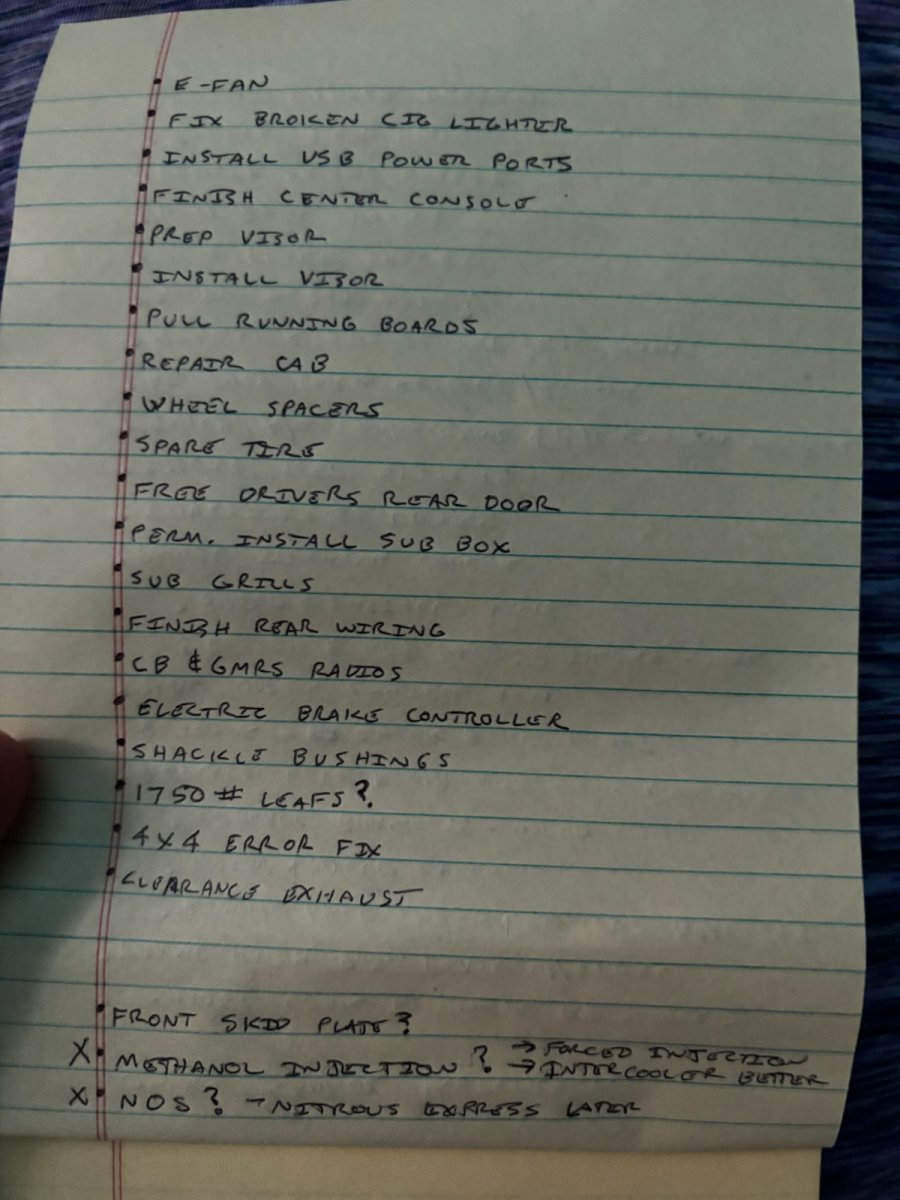 • E-FAN
• FIX BROKEN CIG LIGHTER
• INSTALL USB POWER PORTS
• FINISH CENTER CONSOLE
• PREP VISOR
• INSTALL VISOR
• PULL RUNNING BOARDS
• REPAIR CAB
• WHEEL SPACERS
• SPARE TIRE
• FREE DRIVERS REAR DOOR
• PERM. INSTALL SUB BOX
• SUB GRILLS
• FINISH REAR WIRING
• CB & GMRS RADIOS
• ELECTRIC BRAKE CONTROLLER
• SHACKLE BUSHINGS
• 1750# LEAFS?
• 4X4 ERROR FIX
• CLEARANCE EXHAUST
• FRONT SKID PLATE?
X • METHANOL INJECTION? → FORCED INJECTION
→ INTERCOOLER BETTER
X • NOS? - NITROUS EXPRESS LATER